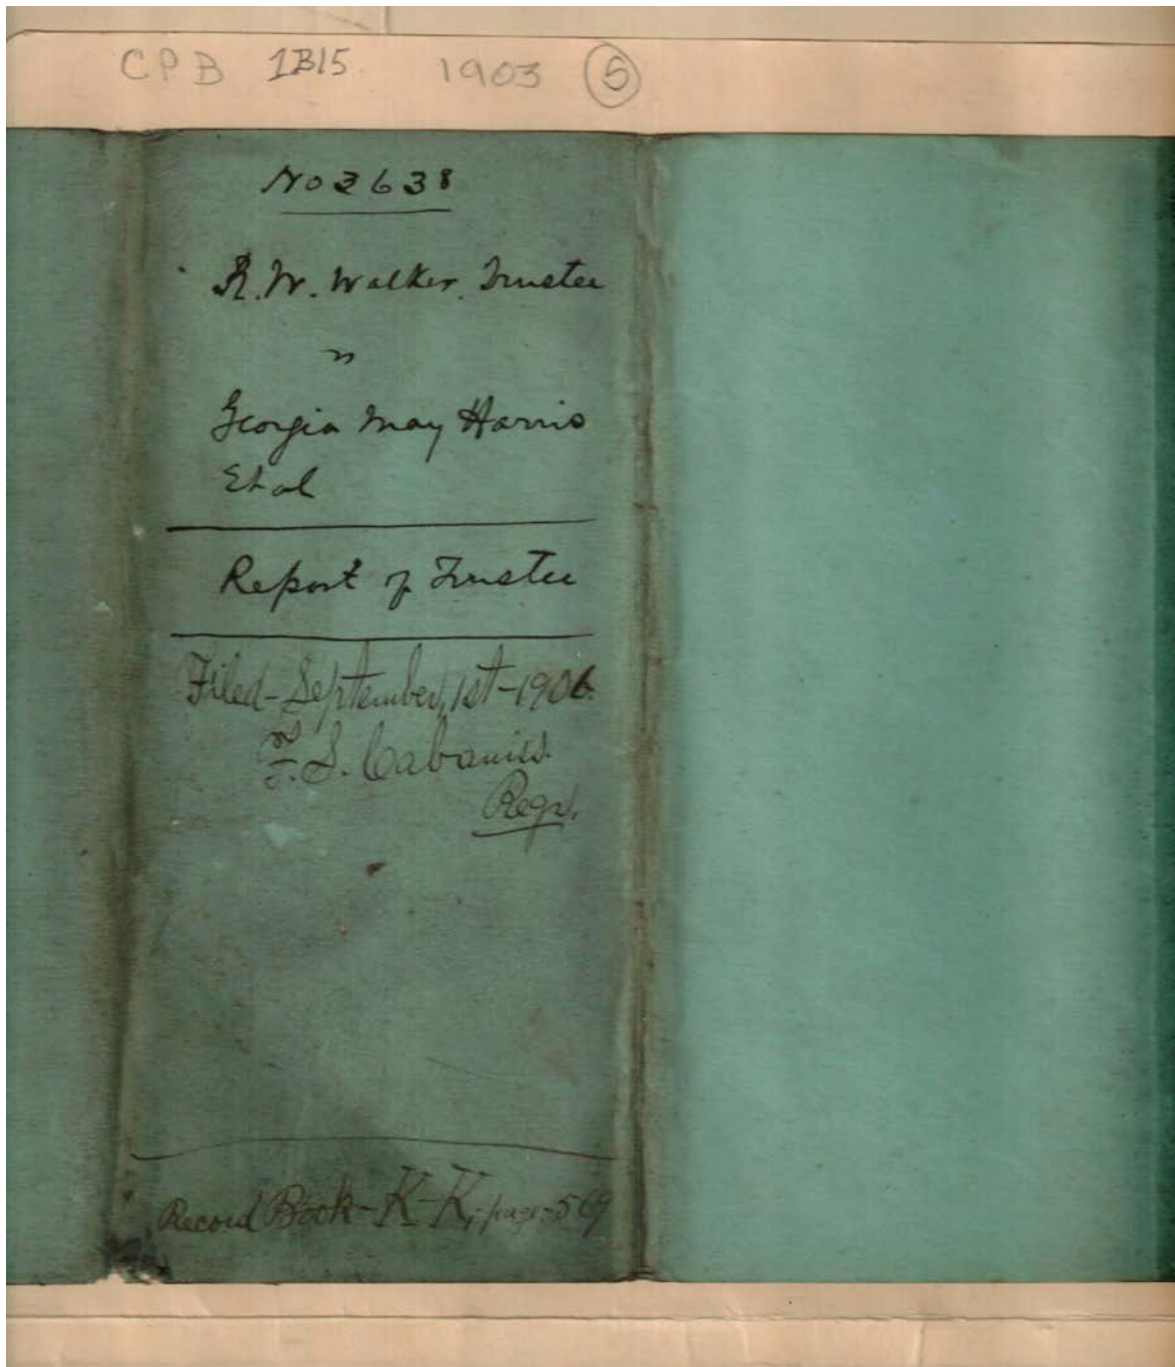 CPB 1B15. 1903 5
No 2638
R. W. Walker, Trustee
vs
Georgia May Harris
Et al
Report of Trustee
Filed - September, 1st - 1906.
F. S. Cabaniss.
Regr.
Record Book - K - K, - page - 569